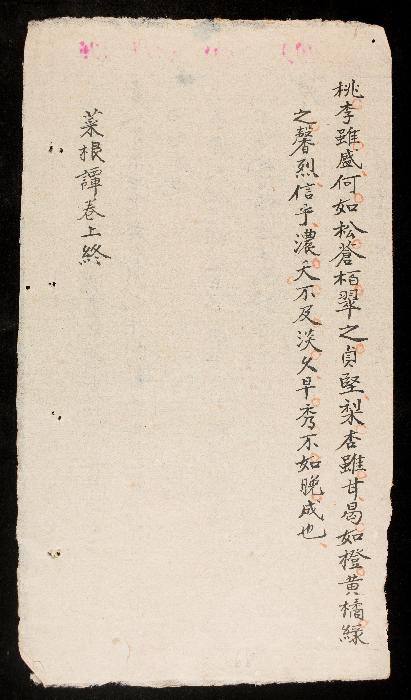 桃李雖盛何如松蒼栢翠之貞堅梨杏雖甘曷如橙黃橘綠
之馨烈信乎濃夭不及淡久早秀不如晚成也
菜根譚卷上終